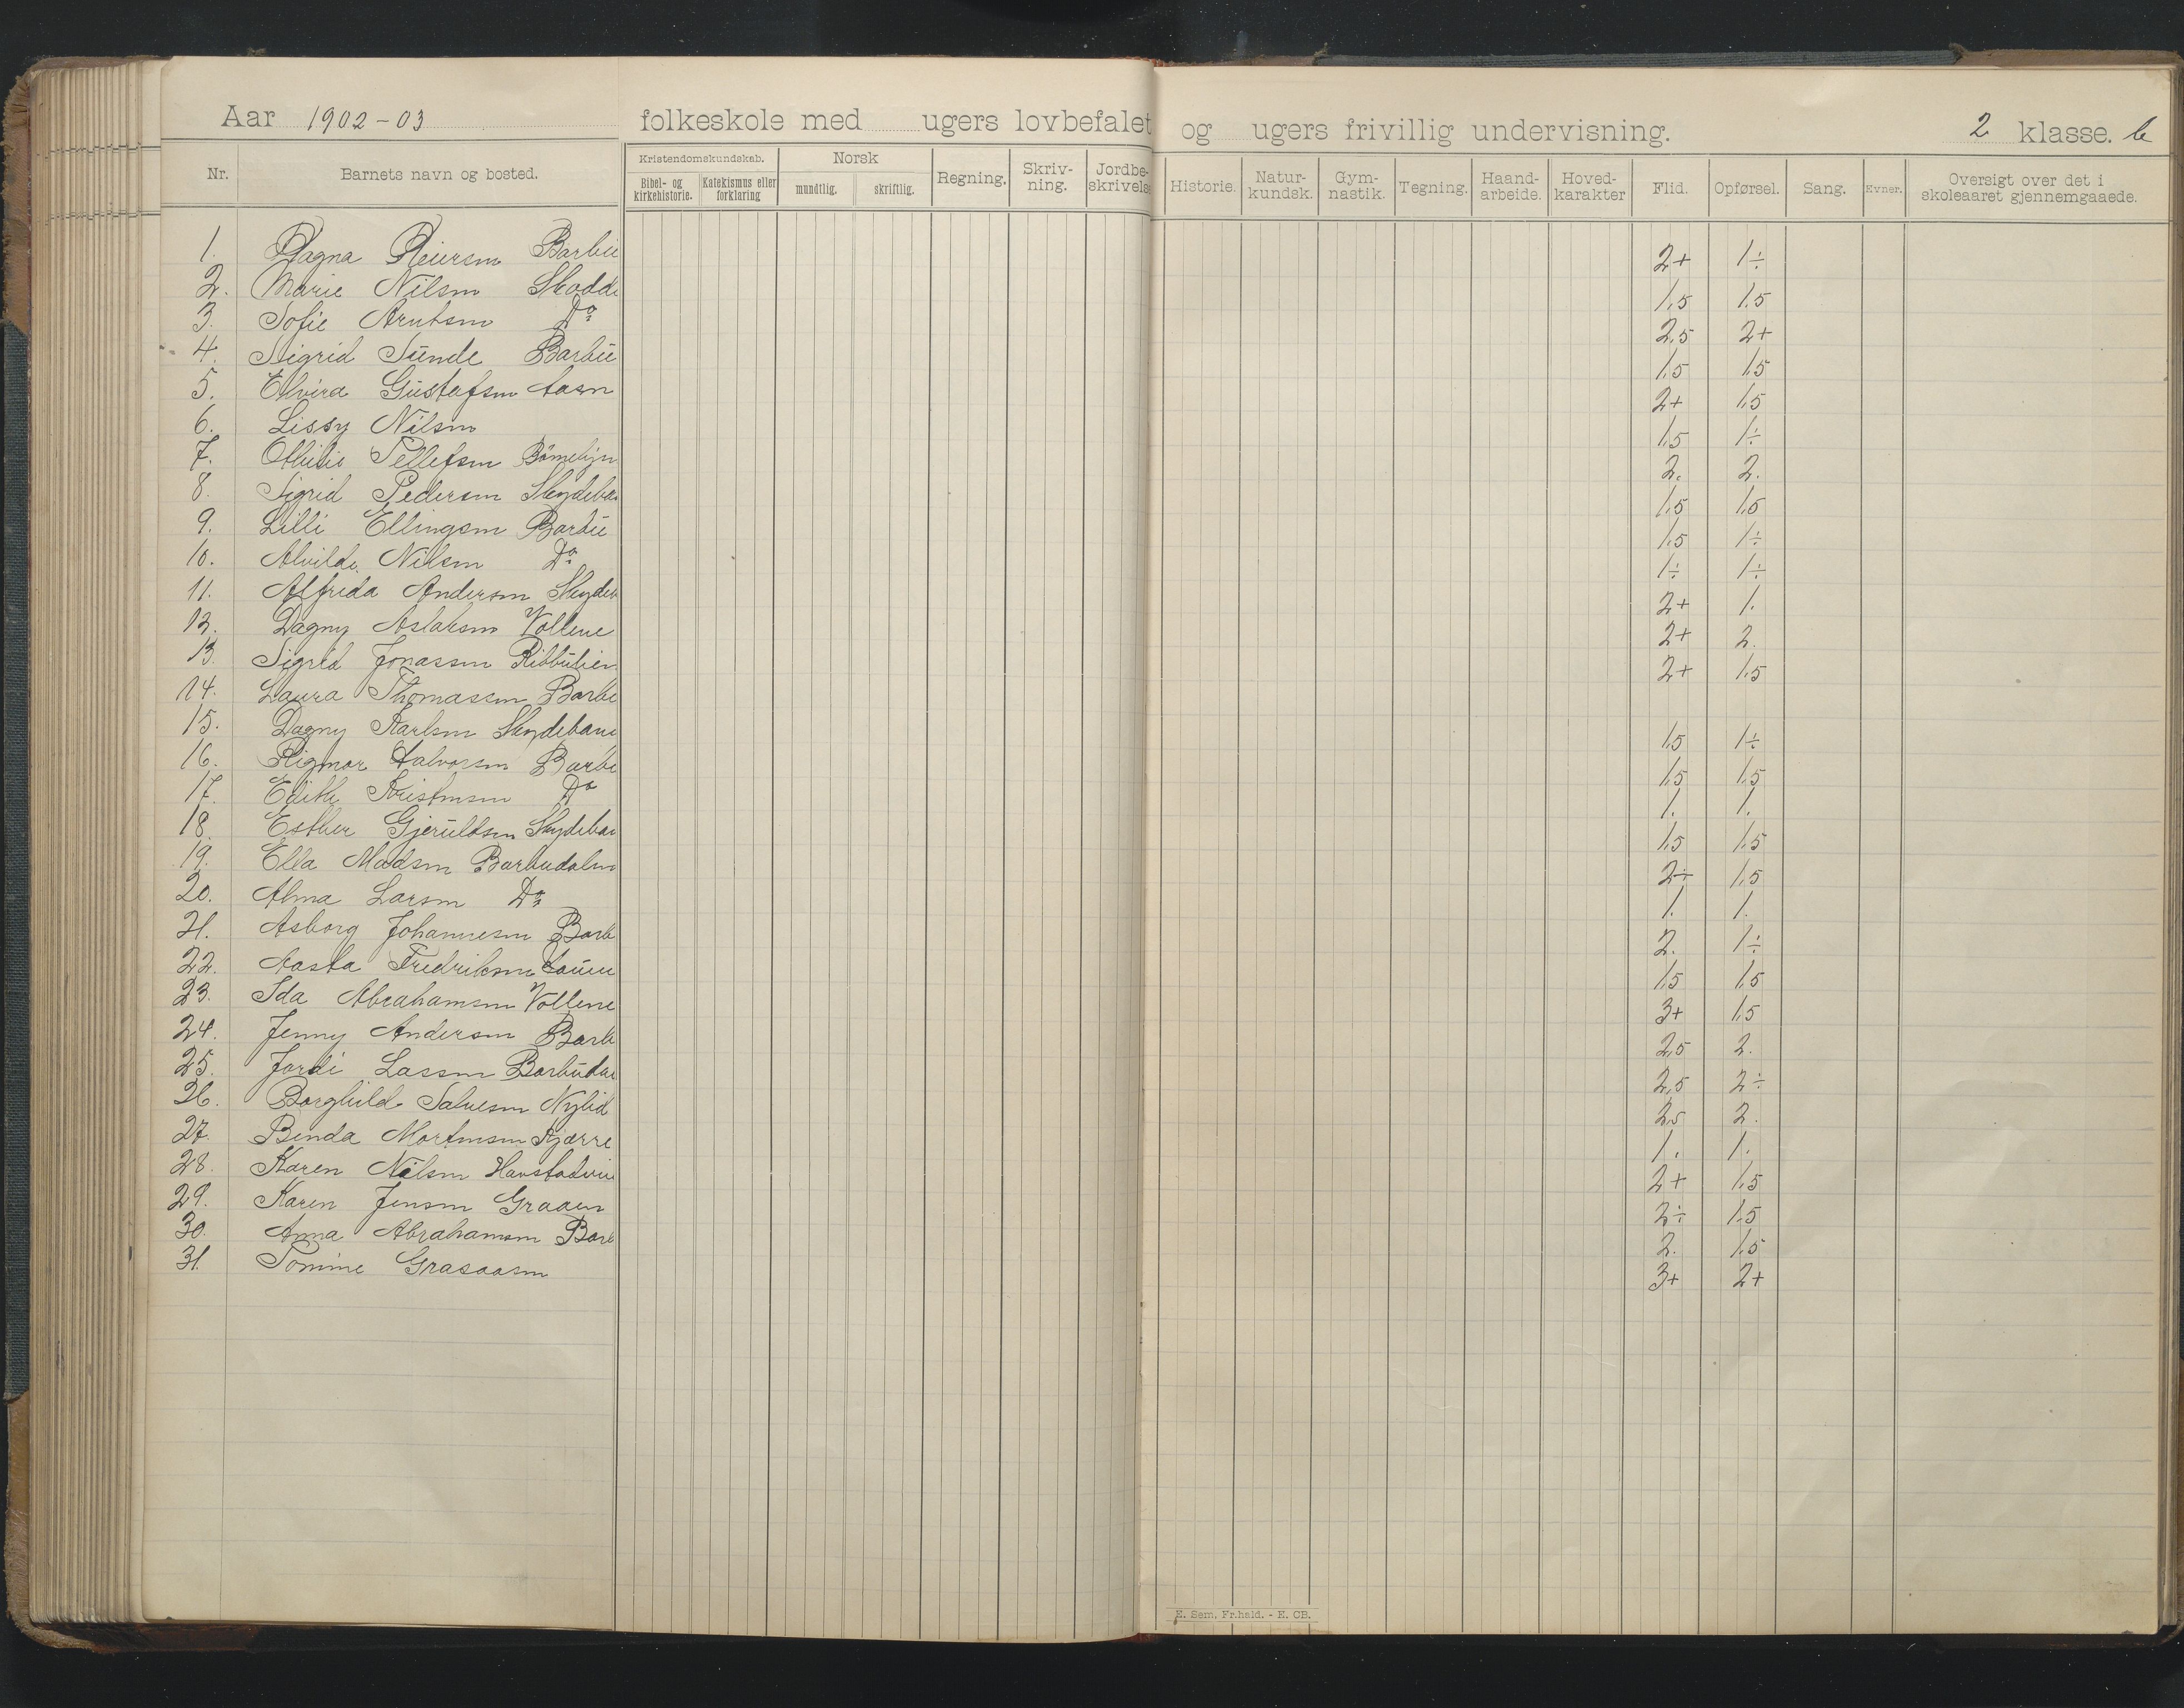 Aar 1902-03 folkeskole med ugers lovbefalet og ugers frivillig undervisning. 2 klasse. b
Nr. Barnets navn og bosted. Kristendomskundskab. Bibel- og kirkehistorie. Katekismus eller forklaring Norsk mundtlig. skriftlig. Regning. Skriv-ning. Jordbe-skrivelse Historie. Natur-kundsk. Gym-nastik. Tegning. Haand-arbeide. Hoved-karakter Flid. Opførsel. Sang. Evner. Oversigt over det i skoleaaret gjennemgaaede.
1. Ragna Reiersen Barbu 2+ 1÷
2. Marie Nilsen Skodde 1,5 1,5
3. Sofie Arntsen Do 2,5 2+
4. Sigrid Sunde Barbu 1,5 1,5
5. Elvira Gustafsen 2+ 1,5
6. Lissy Nilsen 1,5 1÷
7. Othilie Tellefsen 2. 2.
8. Sigrid Pedersen Skydeba 1,5 1,5
9. Lilli Ellingsen Barbu 1,5 1÷
10. Alvilde Nilsen Do 1÷ 1÷
11. Alfreda Andersen Skydeb 2+ 1.
12. Dagny Aslaksen Vollene 2+ 2.
13. Sigrid Jonassen Ribbulien 2+ 1,5
14. Laura Thomassen Barbu
15. Dagny Karlsen Skydebane 1,5 1÷
16. Rigmor Halvorsen Barbu 1,5 1,5
17. Edith Kristensen Do 1. 1.
18. Esther Gjeruldsen Skydeban 1,5 1,5
19. Ella Madsen Barbudalen 2÷ 1,5
20. Alma Larsen Do 1. 1.
21. Asborg Johannesen Barb 2. 1÷
22. Aasta Fredriksen 1,5 1,5
23. Ida Abrahamsen Vollene 3+ 1,5
24. Jenny Andersen Barb 2,5 2.
25. Jordi Lassen Barbudal 2,5 2÷
26. Borghild Salvesen Nylid 2,5 2.
27. Benda Mortensen Kjærre 1. 1.
28. Karen Nilsen Havstadvei 2+ 1,5
29. Karen Jensen Graaen 2÷ 1,5
30. Anna Abrahamsen Barb 2. 1,5
31. Tomine Grasaasen 3+ 2+
E. Sem, Fr.hald. - E. CB.